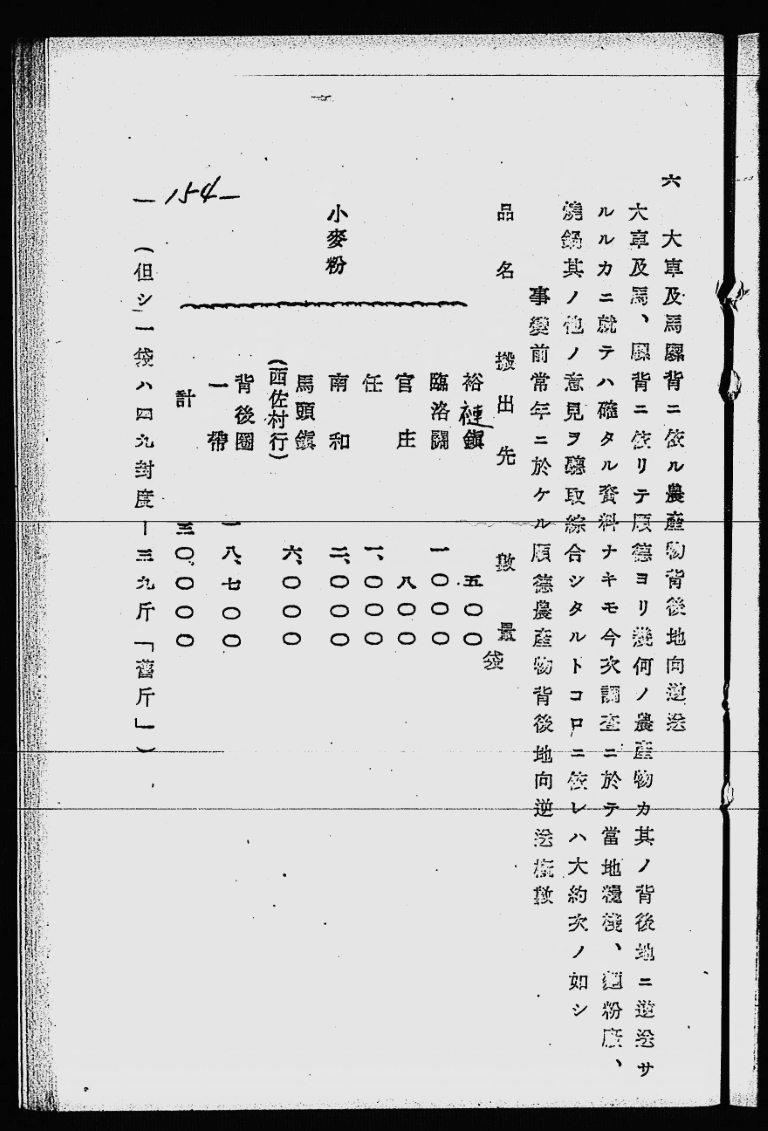 六　大車及馬騾背ニ依ル農産物背後地向逆送
大車及馬、騾背ニ依リテ順德ヨリ幾何ノ農産物カ其ノ背後地ニ逆送サ
ルルカニ就テハ確タル資料ナキモ今次調査ニ於テ當地糧棧、麵粉廠、
燒鍋其ノ他ノ意見ヲ聽取綜合シタルトコロニ依レハ大約次ノ如シ
事變前常年ニ於ケル順德農産物背後地向逆送槪數
品名　搬出先　數量
袋
小麥粉
裕褳鎭　五〇〇
臨洛關　一〇〇〇
官庄　八〇〇
任　一、〇〇〇
南和　二、〇〇〇
馬頭鎭　六、〇〇〇
(西佐村行)
背後圈
一帶　一八、七〇〇
計　三〇、〇〇〇
一　(但シ一袋ハ四九封度ー三九斤「舊斤」)
154